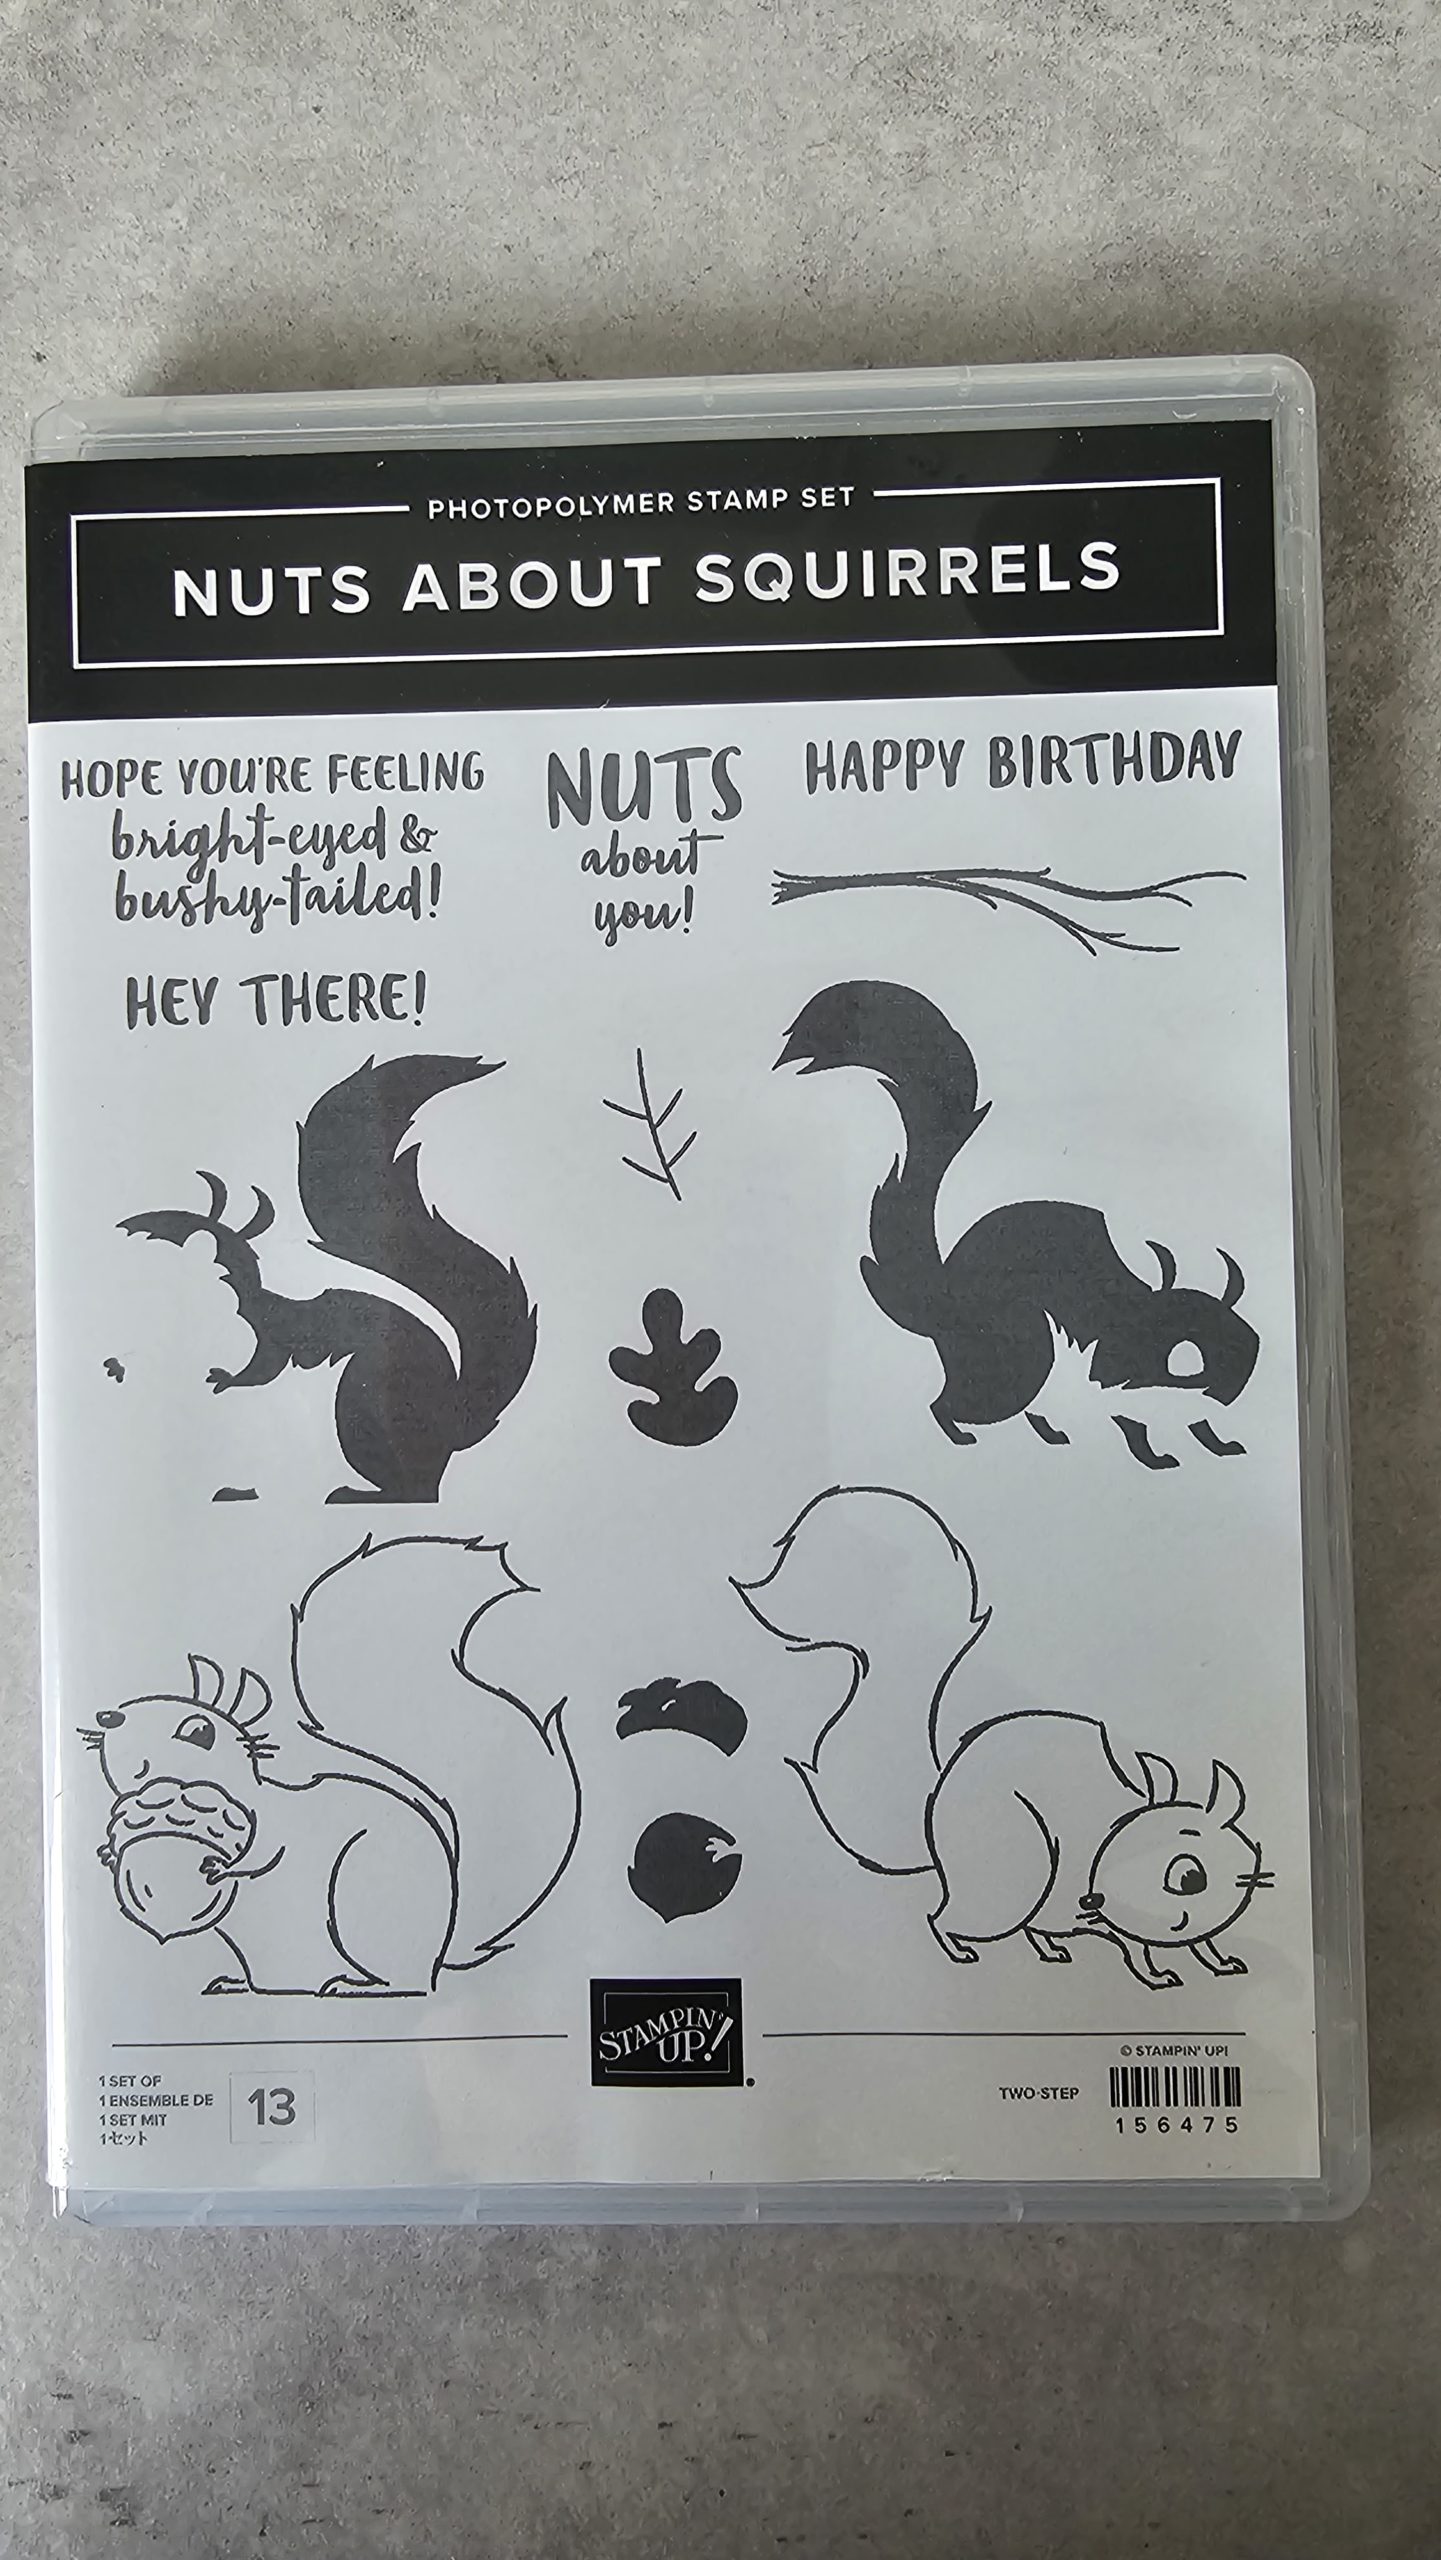 PHOTOPOLYMER STAMP SET
NUTS ABOUT SQUIRRELS
HOPE YOU'RE FEELING
bright-eyed &
bushy-tailed!
NUTS
about
you!
HAPPY BIRTHDAY
HEY THERE!
STAMPIN'
UP!
1 SET OF
1 ENSEMBLE DE
1 SET MIT
1セット
13
TWO-STEP
© STAMPIN' UP!
156475